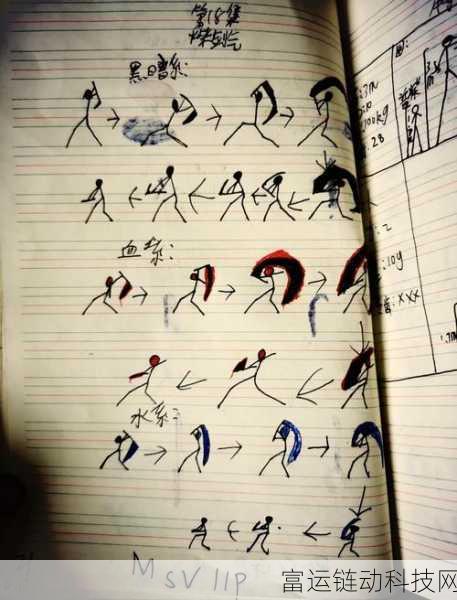 第18集
黑暗系:
血系:
水系:
:3m
100kg
: 28
: 2
: 10y
: XXX
M SV 11P
富运链动科技网